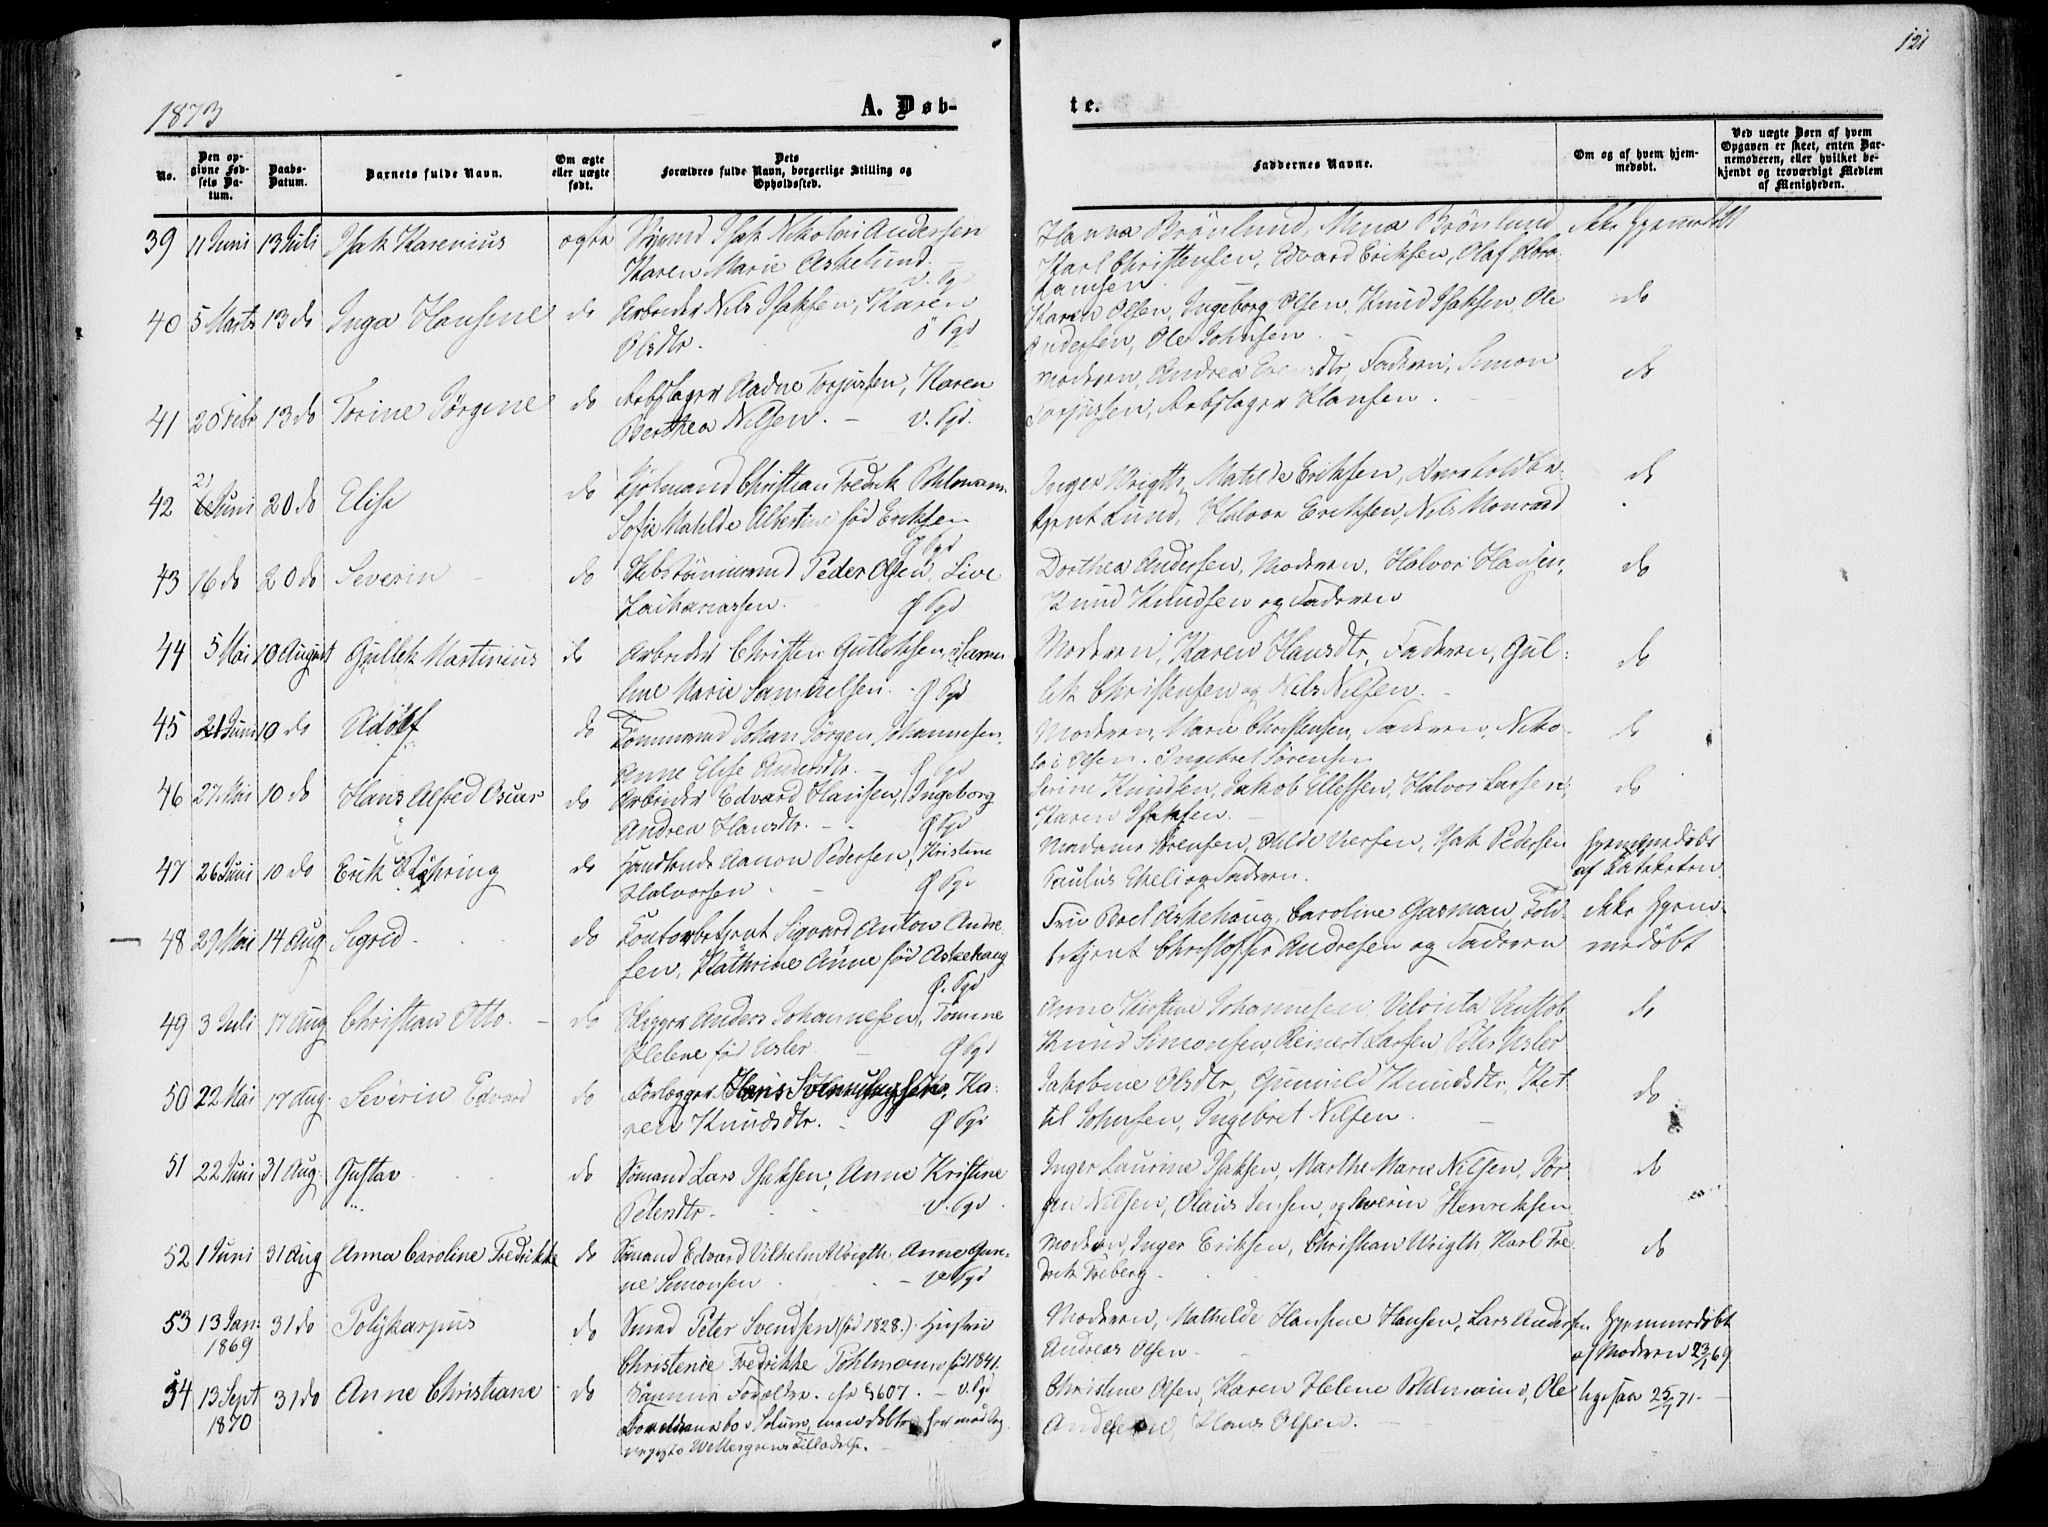 121
1873
A. Døb-
te.
No.
Den op-
givne Fød-
sels Da-
tum.
Daabs-
Datum.
Barnets fulde Navn.
Om ægte
eller uægte
født.
Dets
Forældres fulde Navn, borgerlige Stilling og
Opholdssted.
Faddernes Navne.
Om og af hvem hjem-
medøbt.
Ved uægte Børn af hvem
Opgaven er skeet, enten Bar-
nemoderen, eller hvilket be-
kjendt og troværdigt Medlem
af Menigheden.
39 11 Juni 13 Juli Isak Karenius ægte Sømand Isak Nikolai Andersen
Karen Marie Askelund. v. Pgr
Hanna Brönlund, Mina Brönlund
Karl Christensen, Edvard Eriksen, Olaf Abra-
hamsen.
ikke hjemmedøbt
40 5 Marts 13 do Inga Hansine do Arbeider Nils Isaksen, Karen
Olsdtr. Ø Pgr
Karen Olsen, Ingeborg Olsen, Knud Isaksen, Ole
Andersen, Ole Johnsen.
do
41 20 Febr 13 do Torine Jörgine do Aadne Torjussen, Karen
Berthea Nilsen. v. Pgr.
Moderen, Andrea Faderen, Simon
Torjussen, Hansen.
do
42 21 Juni 20 do Elise do Christian Fredrik Pohlmann
Sofie Matilde Albertine fød Eriksen
Ø Pgr
Inger Wrigth, Matilde Eriksen,
Lund, Halvor Eriksen, Nils Monrad
do
43 16 do 20 do Severin do Peder Olsen, Live
Zachariassen. Ø Pgr
Dorthea Andersen, Moderen, Halvor Hansen,
Knud Knudsen og Faderen
do
44 5 Mai 10 August Gullek Martinius do Arbeider Christen Gulleksen,
Marie Samuelsen. Ø Pgr
Moderen, Karen Hansdtr, Faderen, Gul-
lek Christensen og Nils Nilsen.
do
45 21 Juni 10 do Adolf do Tømmermand Johan Jörgen Johannesen,
Anne Elise Andersdtr. Ø Pgr
Moderen, Marie Christensen, Faderen, Niko-
lai Olsen. Ingebret Sørensen
do
46 27 Mai 10 do Hans Alfred Oscar do Arbeider Edvard Hansen, Ingeborg
Andrea Hansdtr. Ø Pgr
Serine Knudsen, Jakob Ellefsen, Halvor Larsen,
Karen Isaksen.
do
47 26 Juni 10 do Erik do Aanon Pedersen, Kristine
Halvorsen Ø Pgr
Madame Isak Pedersen
Paulus og Faderen.
hjemmedøbt
af Kateketen
48 29 Mai 14 Aug Sigrid do Kontorbetjent Sigvard Anton Andre-
sen, Kathrine Anne fød Askehaug
Ø. Pgr
Fru Boel Askehaug, Caroline Gasman, Told-
betjent Christoffer Andresen og Faderen
ikke hjem-
medøbt
49 3 Juli 17 Aug Christian Otto do Anders Johannesen, Tomine
Helene fød Usler Ø Pgr
Anne Kirstine Johannesen,
Knud Simonsen, Reinert Larsen Peter Usler
do
50 22 Mai 17 Aug. Severin Edvard do Hans Ka-
ren Knudsdtr. Ø Pgr
Jakobine Olsdtr, Gunild Knudsdtr, Ket-
til Johnsen, Ingebret Nilsen.
do
51 22 Juni 31 Aug. Gustav do Sömand Lars Isaksen, Anne Kristine
Petersdtr. v. Pgr
Inger Laurine Isaksen, Marthe Marie Nilsen, Jör-
gen Nilsen, Olaus Jensen, og Severin Henriksen
do
52 1 Juni 31 Aug Anna Caroline Fredrikke do Sömand Edvard Vilhelm Wrigth, Anne Gun-
ne Simonsen v Pgr
Moderen, Inger Eriksen, Christian Wrigth Karl Fre-
drik Friberg.
do
53 13 Jan 31 do Polykarpus do Smed Peter Svendsen (fød 1828.) Hustru
1869 Christence Fredrikke Pohlmann fød 1841.
Moderen, Mathilde Hansine Hansen, Lars Andersen
Andreas Olsen
hjemmedøbt
af Moderen 23/1 69
54 13 Sept 31 do Anne Christiane do Samme Forældre. v. Pgr
1870 Forældrene bo i Solum, men
Wettergrens Tilladelse.
Christine Olsen, Karen Helene Pohlmann, Ole
Andersen, Hans Olsen.
ligesaa 25/1 71.